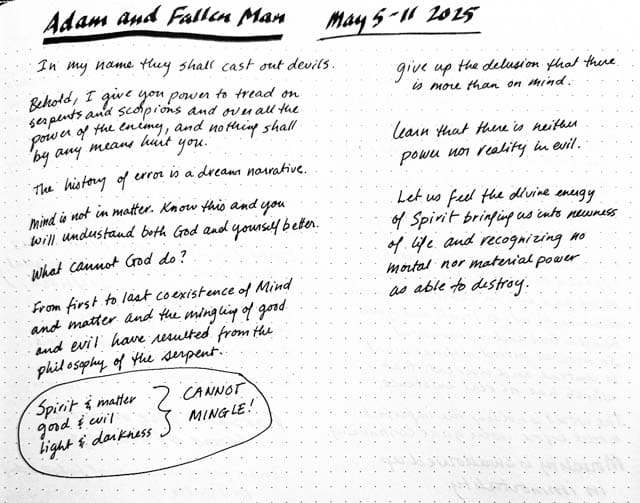 Adam and Fallen Man
May 5-11 2025
In my name they shall cast out devils.
Behold, I give you power to tread on
serpents and scorpions and over all the
power of the enemy, and nothing shall
by any means hurt you.
The history of error is a dream narrative.
Mind is not in matter. Know this and you
will understand both God and yourself better.
What cannot God do?
From first to last coexistence of Mind
and matter and the mingling of good
and evil have resulted from the
philosophy of the serpent.
Spirit & matter
good & evil
light & darkness
CANNOT
MINGLE!
give up the delusion that there
is more than on mind.
learn that there is neither
power nor reality in evil.
Let us feel the divine energy
of Spirit bringing us into newness
of life and recognizing no
mortal nor material power
as able to destroy.